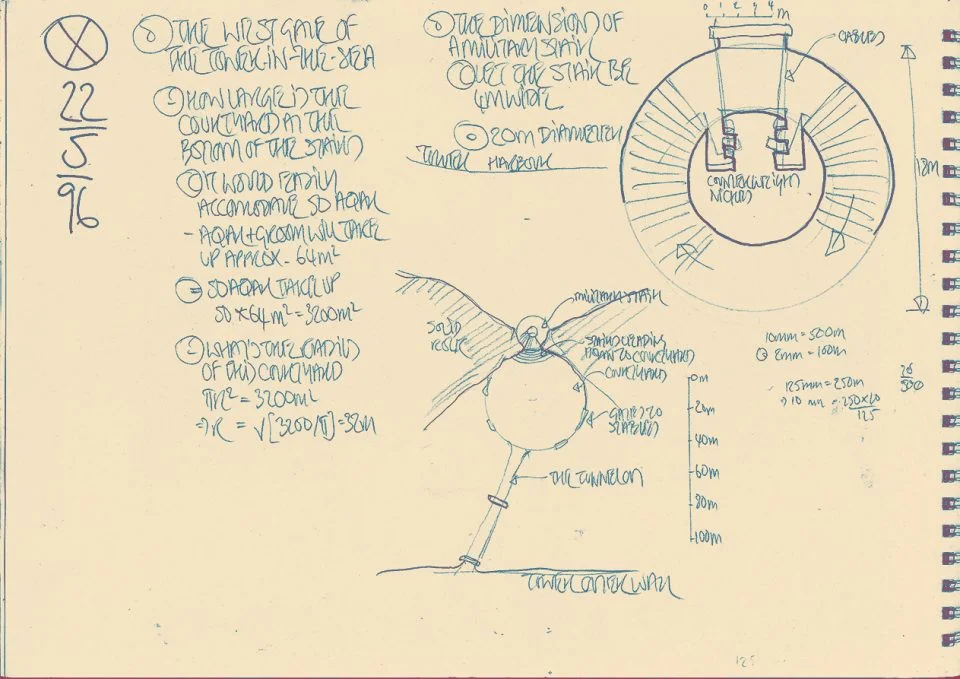 22
5
96
THE WEST GATE OF
THE TOWER-IN-THE-SEA
HOW LARGE IS THE
COURTYARD AT THE
BOTTOM OF THE STAIRS
IT WOULD EASILY
ACCOMODATE 50 AQAR
- AQAR + GROOM WILL TAKE
UP APPROX. 64m²
50 AQAR TAKE UP
50 * 64m² = 3200m²
WHAT'S THE RADIUS
OF THIS COURTYARD
πr² = 3200m²
⇒ r = √[3200/π] = 32m
THE DIMENSION OF
A MILITARY STAIR
LET THE STAIR BE
4m WIDE
20m DIAMETER
HARBOUR
0 1 2 3 4 m
CABLES
COUNTERWEIGHT
NICHES
18m
MILITARY STAIR
SOLID
ROCK
STAIRS LEADING
COURTYARD
GATES TO
STABLES
0m
20m
40m
60m
80m
100m
THE TUNNEL
TOWER OUTER WALL
10mm = 500m
8mm = 100m
125mm = 250m
⇒ 10mm = 250 x 10
125
125